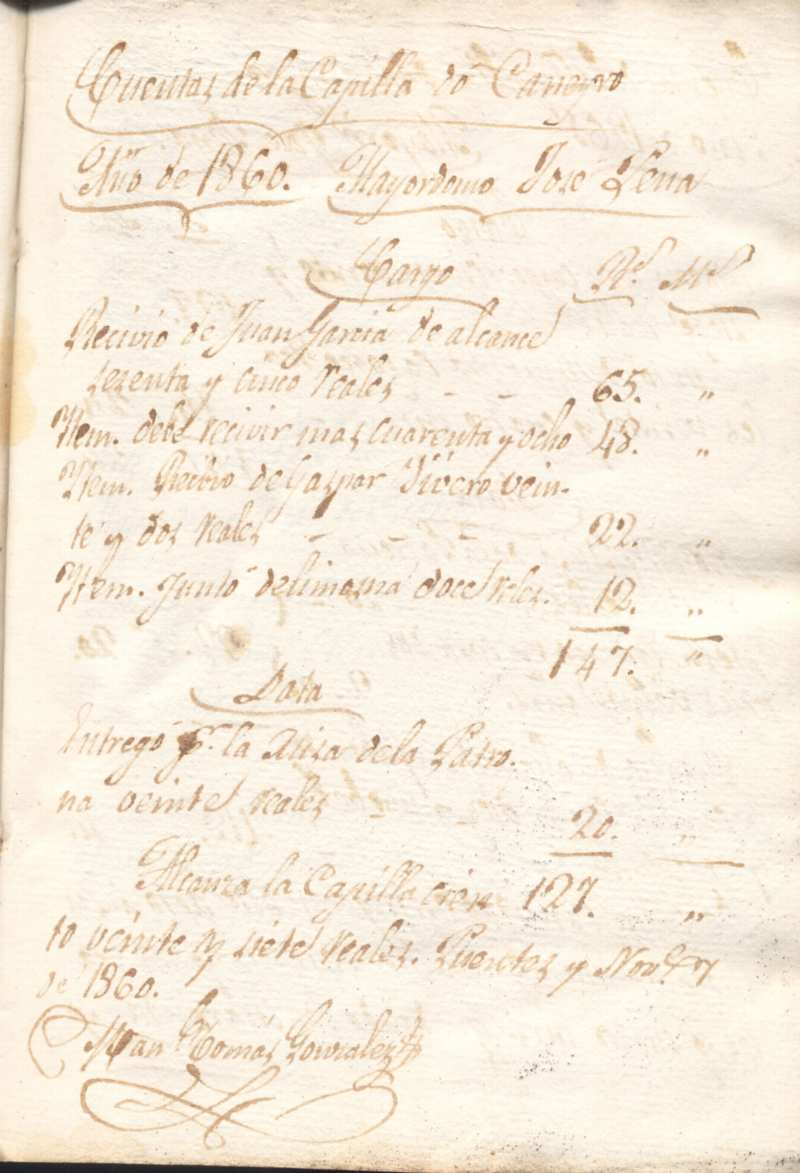 Cuentas de la Capilla do Caneyro
Año de 1860. Mayordomo José Lena
Cargo Rs. Ms.
Recivió de Juan Garcia de alcance
sesenta y cinco reales - - 65. "
Item. debe recivir mas cuarenta y ocho 48. "
Item. Recibio de Gaspar Vivero vein-
te y dos reales - - - 22. "
Item. Junto de limosna doce reles. 12. "
147. "
Data
Entregó pr. la Misa de la Patro-
na veinte reales - - 20. "
Alcanza la Capilla cien- 127. "
to veinte y siete reales. Puentes y Nove. 7
de 1860.
Juan Tomás Gonzalez